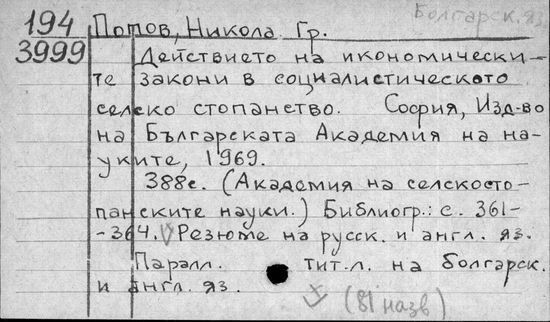 Болгарск. яз.
194
3999
Попов, Никола Гр.
Действието на икономически-
те закони в социалистическото
селско стопанство. София, Изд-во
на Българската Академия на на-
уките, 1969.
388с. (Академия на селскосто-
панските науки.) Библиогр.: с. 361-
-364. Резюме на русск. и англ. яз.
Паралл. тит.л. на болгарск.
и англ. яз.
(81 назв)